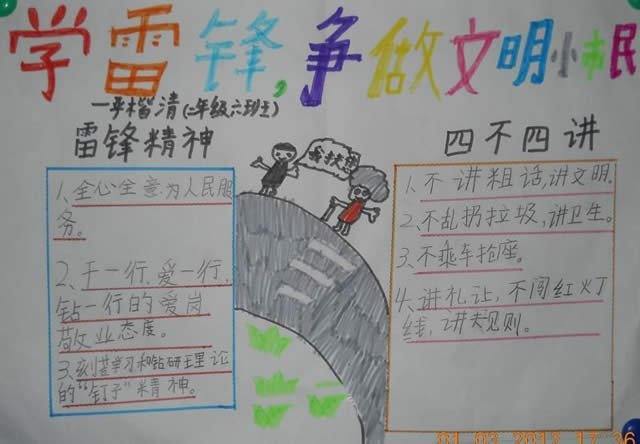 学雷锋,争做文明小市民
一平楷清(二年级六班)
雷锋精神
1、全心全意为人民服
务。
2、干一行,爱一行,
钻一行的爱岗
敬业态度。
3、刻苦学习和钻研理论
的"钉子"精神。
我扶您
四不四讲
1、不讲粗话,讲文明.
2、不乱扔垃圾,讲卫生。
3、不乘车抢座。
4、讲礼让,不闯红火丁
线,讲夫见则。